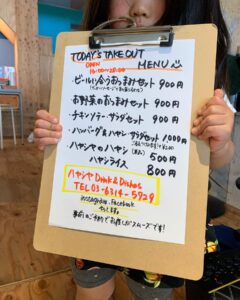 TODAY'S TAKE OUT
MENU
OPEN
16:00~20:00
ビールに合うおつまみセット 900円
お野菜のおつまみセット 900円
チキンソテーサラダセット 900円
ハンバーグ&ハヤシサラダセット 1000円
ハヤシヤのハヤシ 500円
ハヤシライス 800円
ハヤシヤ Drink & Dishes
TEL 03-6314-5929
instagram. Facebook
やってます。
事前のご予約でお渡しがスムーズです!